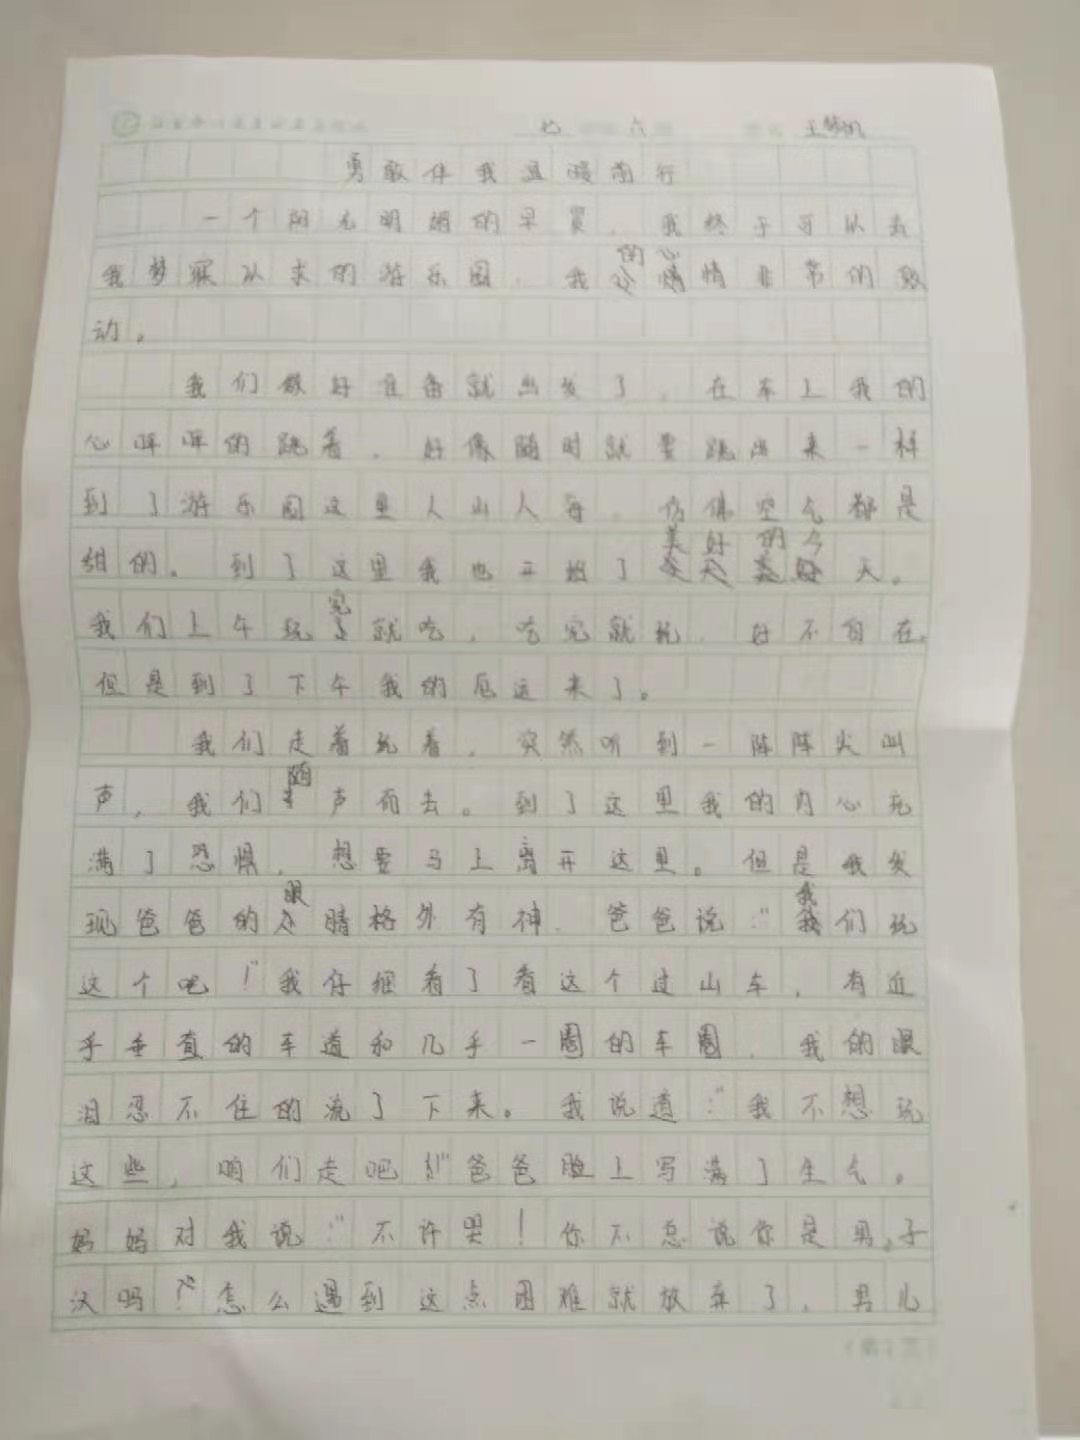 七 六 王梦帆
勇敢伴我温暖前行
一个阳光明媚的早晨，我终于可以去
我梦寐以求的游乐园，我的心情非常的激
动。
我们做好准备就出发了，在车上我的
心怦怦的跳着，好像随时就要跳出来一样
到了游乐园这里人山人海，仿佛空气都是
甜的。到了这里我也开始了美好的今天。
我们上午玩完就吃，吃完就玩，好不自在。
但是到了下午我的厄运来了。
我们走着玩着，突然听到一阵阵尖叫
声，我们随声而去。到了这里我的内心充
满了恐惧，想要马上离开这里。但是我发
现爸爸的眼睛格外有神，爸爸说："我们玩
这个吧！"我仔细看了看这个过山车，有近
乎垂直的车道和几乎一圈的车圈，我的眼
泪忍不住的流了下来。我说道："我不想玩
这些，咱们走吧！"爸爸脸上写满了生气。
妈妈对我说："不许哭！你不总说你是男子
汉吗？怎么遇到这点困难就放弃了，男儿